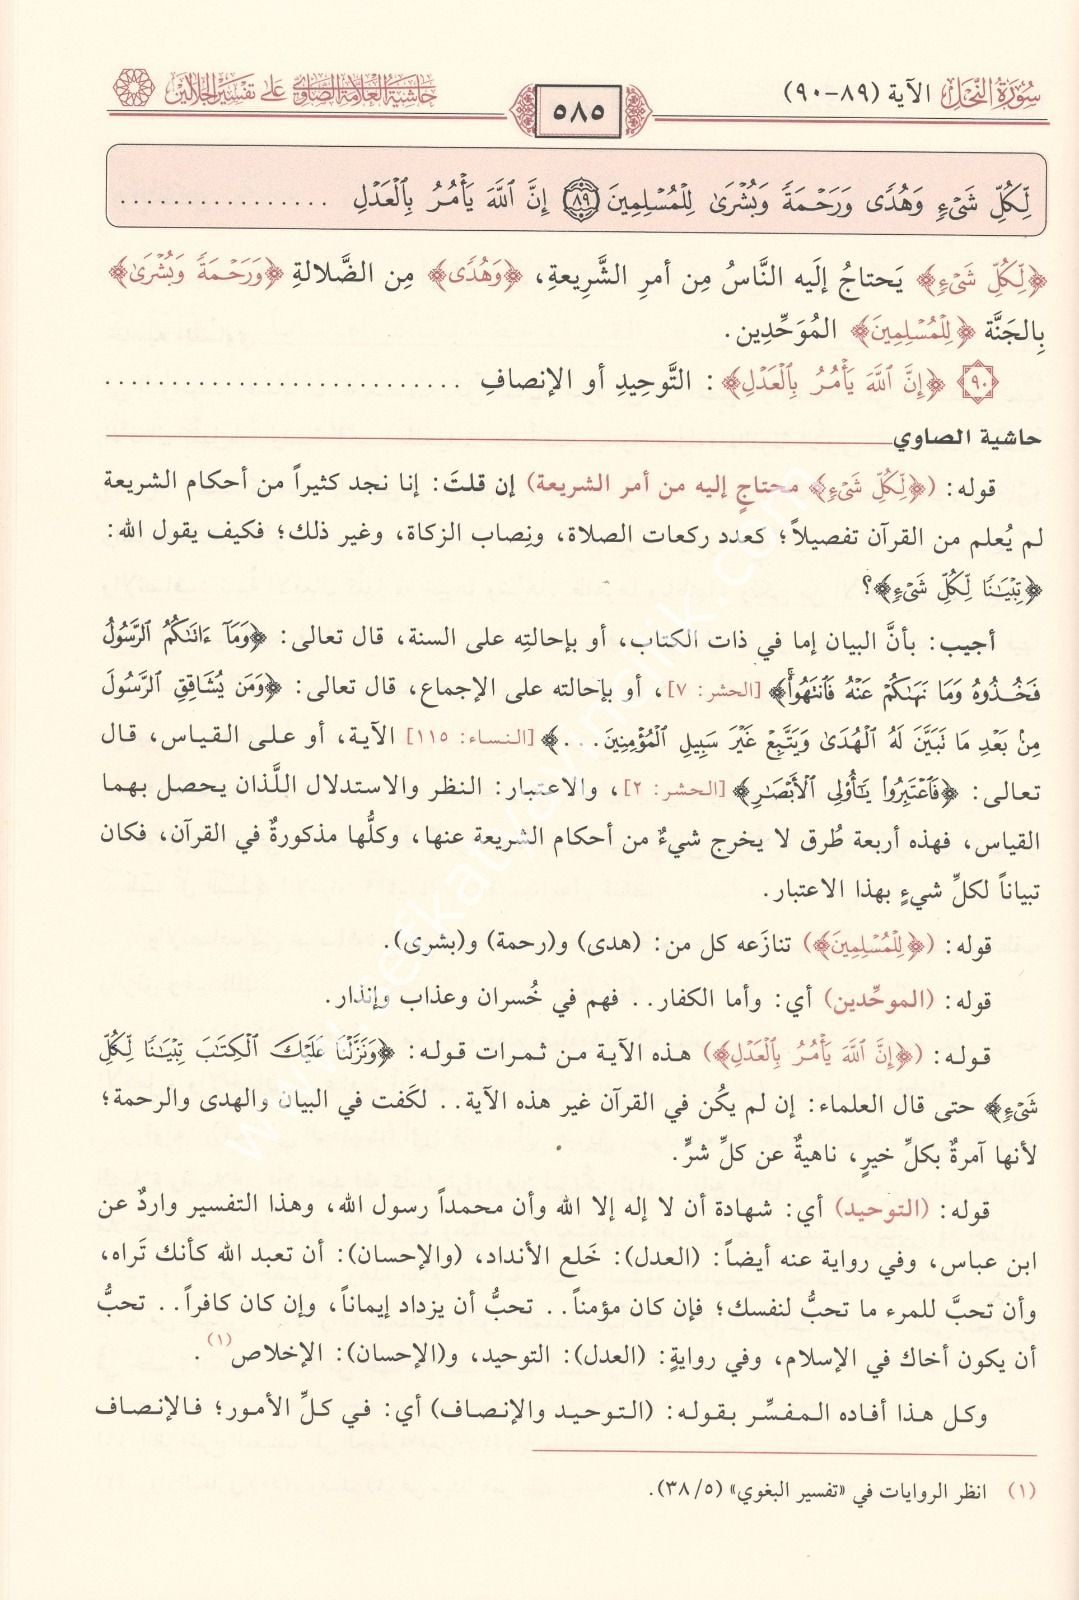 سُورَةُ النَّحْلِ الآية (٨٩-٩٠)
٥٨٥
حاشية العلامة الصاوي على تفسير الجلالين
لِّكُلِّ شَيْءٍ وَهُدًى وَرَحْمَةً وَبُشْرَىٰ لِلْمُسْلِمِينَ ﴿٨٩﴾ إِنَّ ٱللَّهَ يَأْمُرُ بِٱلْعَدْلِ ................
﴿لِّكُلِّ شَيْءٍ﴾ يَحتاجُ إلَيه النَّاسُ مِن أمرِ الشَّرِيعةِ، ﴿وَهُدًى﴾ مِن الضَّلالةِ ﴿وَرَحْمَةً وَبُشْرَىٰ﴾
بِالجَنَّة ﴿لِلْمُسْلِمِينَ﴾ المُوَحِّدِين.
٩٠ ﴿إِنَّ ٱللَّهَ يَأْمُرُ بِٱلْعَدْلِ﴾: التَّوحِيدِ أو الإنصافِ ..........................
حاشية الصاوي
قوله: (﴿لِّكُلِّ شَيْءٍ﴾ محتاجٍ إليه من أمر الشريعة) إن قلتَ: إنا نجد كثيراً من أحكام الشريعة
لم يُعلم من القرآن تفصيلاً؛ كعدد ركعات الصلاة، ونِصاب الزكاة، وغير ذلك؛ فكيف يقول الله:
﴿تِبْيَٰنًا لِّكُلِّ شَيْءٍ﴾؟
أجيب: بأنَّ البيان إما في ذات الكتاب، أو بإحالتِه على السنة، قال تعالى: ﴿وَمَآ ءَاتَىٰكُمُ ٱلرَّسُولُ
فَخُذُوهُ وَمَا نَهَىٰكُمْ عَنْهُ فَٱنتَهُوا۟﴾ [الحشر: ٧]، أو بإحالته على الإجماع، قال تعالى: ﴿وَمَن يُشَاقِقِ ٱلرَّسُولَ
مِنۢ بَعْدِ مَا تَبَيَّنَ لَهُ ٱلْهُدَىٰ وَيَتَّبِعْ غَيْرَ سَبِيلِ ٱلْمُؤْمِنِينَ...﴾ [النساء: ١١٥] الآية، أو على القياس، قال
تعالى: ﴿فَٱعْتَبِرُوا۟ يَٰٓأُو۟لِى ٱلْأَبْصَٰرِ﴾ [الحشر: ٢]، والاعتبار: النظر والاستدلال اللَّذان يحصل بهما
القياس، فهذه أربعة طُرق لا يخرج شيءٌ من أحكام الشريعة عنها، وكلُّها مذكورةٌ في القرآن، فكان
تبياناً لكلِّ شيءٍ بهذا الاعتبار.
قوله: (﴿لِلْمُسْلِمِينَ﴾) تنازَعه كل من: (هدى) و(رحمة) و(بشرى).
قوله: (الموحِّدين) أي: وأما الكفار.. فهم في خُسران وعذاب وإنذار.
قوله: (﴿إِنَّ ٱللَّهَ يَأْمُرُ بِٱلْعَدْلِ﴾) هذه الآية من ثمرات قوله: ﴿وَنَزَّلْنَا عَلَيْكَ ٱلْكِتَٰبَ تِبْيَٰنًا لِّكُلِّ
شَيْءٍ﴾ حتى قال العلماء: إن لم يكُن في القرآن غير هذه الآية.. لكَفت في البيان والهدى والرحمة؛
لأنها آمرةٌ بكلِّ خيرٍ، ناهيةٌ عن كلِّ شرٍّ.
قوله: (التوحيد) أي: شهادة أن لا إله إلا الله وأن محمداً رسول الله، وهذا التفسير واردٌ عن
ابن عباس، وفي رواية عنه أيضاً: (العدل): خَلع الأنداد، (والإحسان): أن تعبد الله كأنك تَراه،
وأن تحبَّ للمرء ما تحبُّ لنفسك؛ فإن كان مؤمناً.. تحبُّ أن يزداد إيماناً، وإن كان كافراً.. تحبُّ
أن يكون أخاك في الإسلام، وفي روايةٍ: (العدل): التوحيد، و(الإحسان): الإخلاص(١).
وكل هذا أفاده المفسِّر بقوله: (التوحيد والإنصاف) أي: في كلِّ الأمور؛ فالإنصاف
(١) انظر الروايات في «تفسير البغوي» (٣٨/٥).